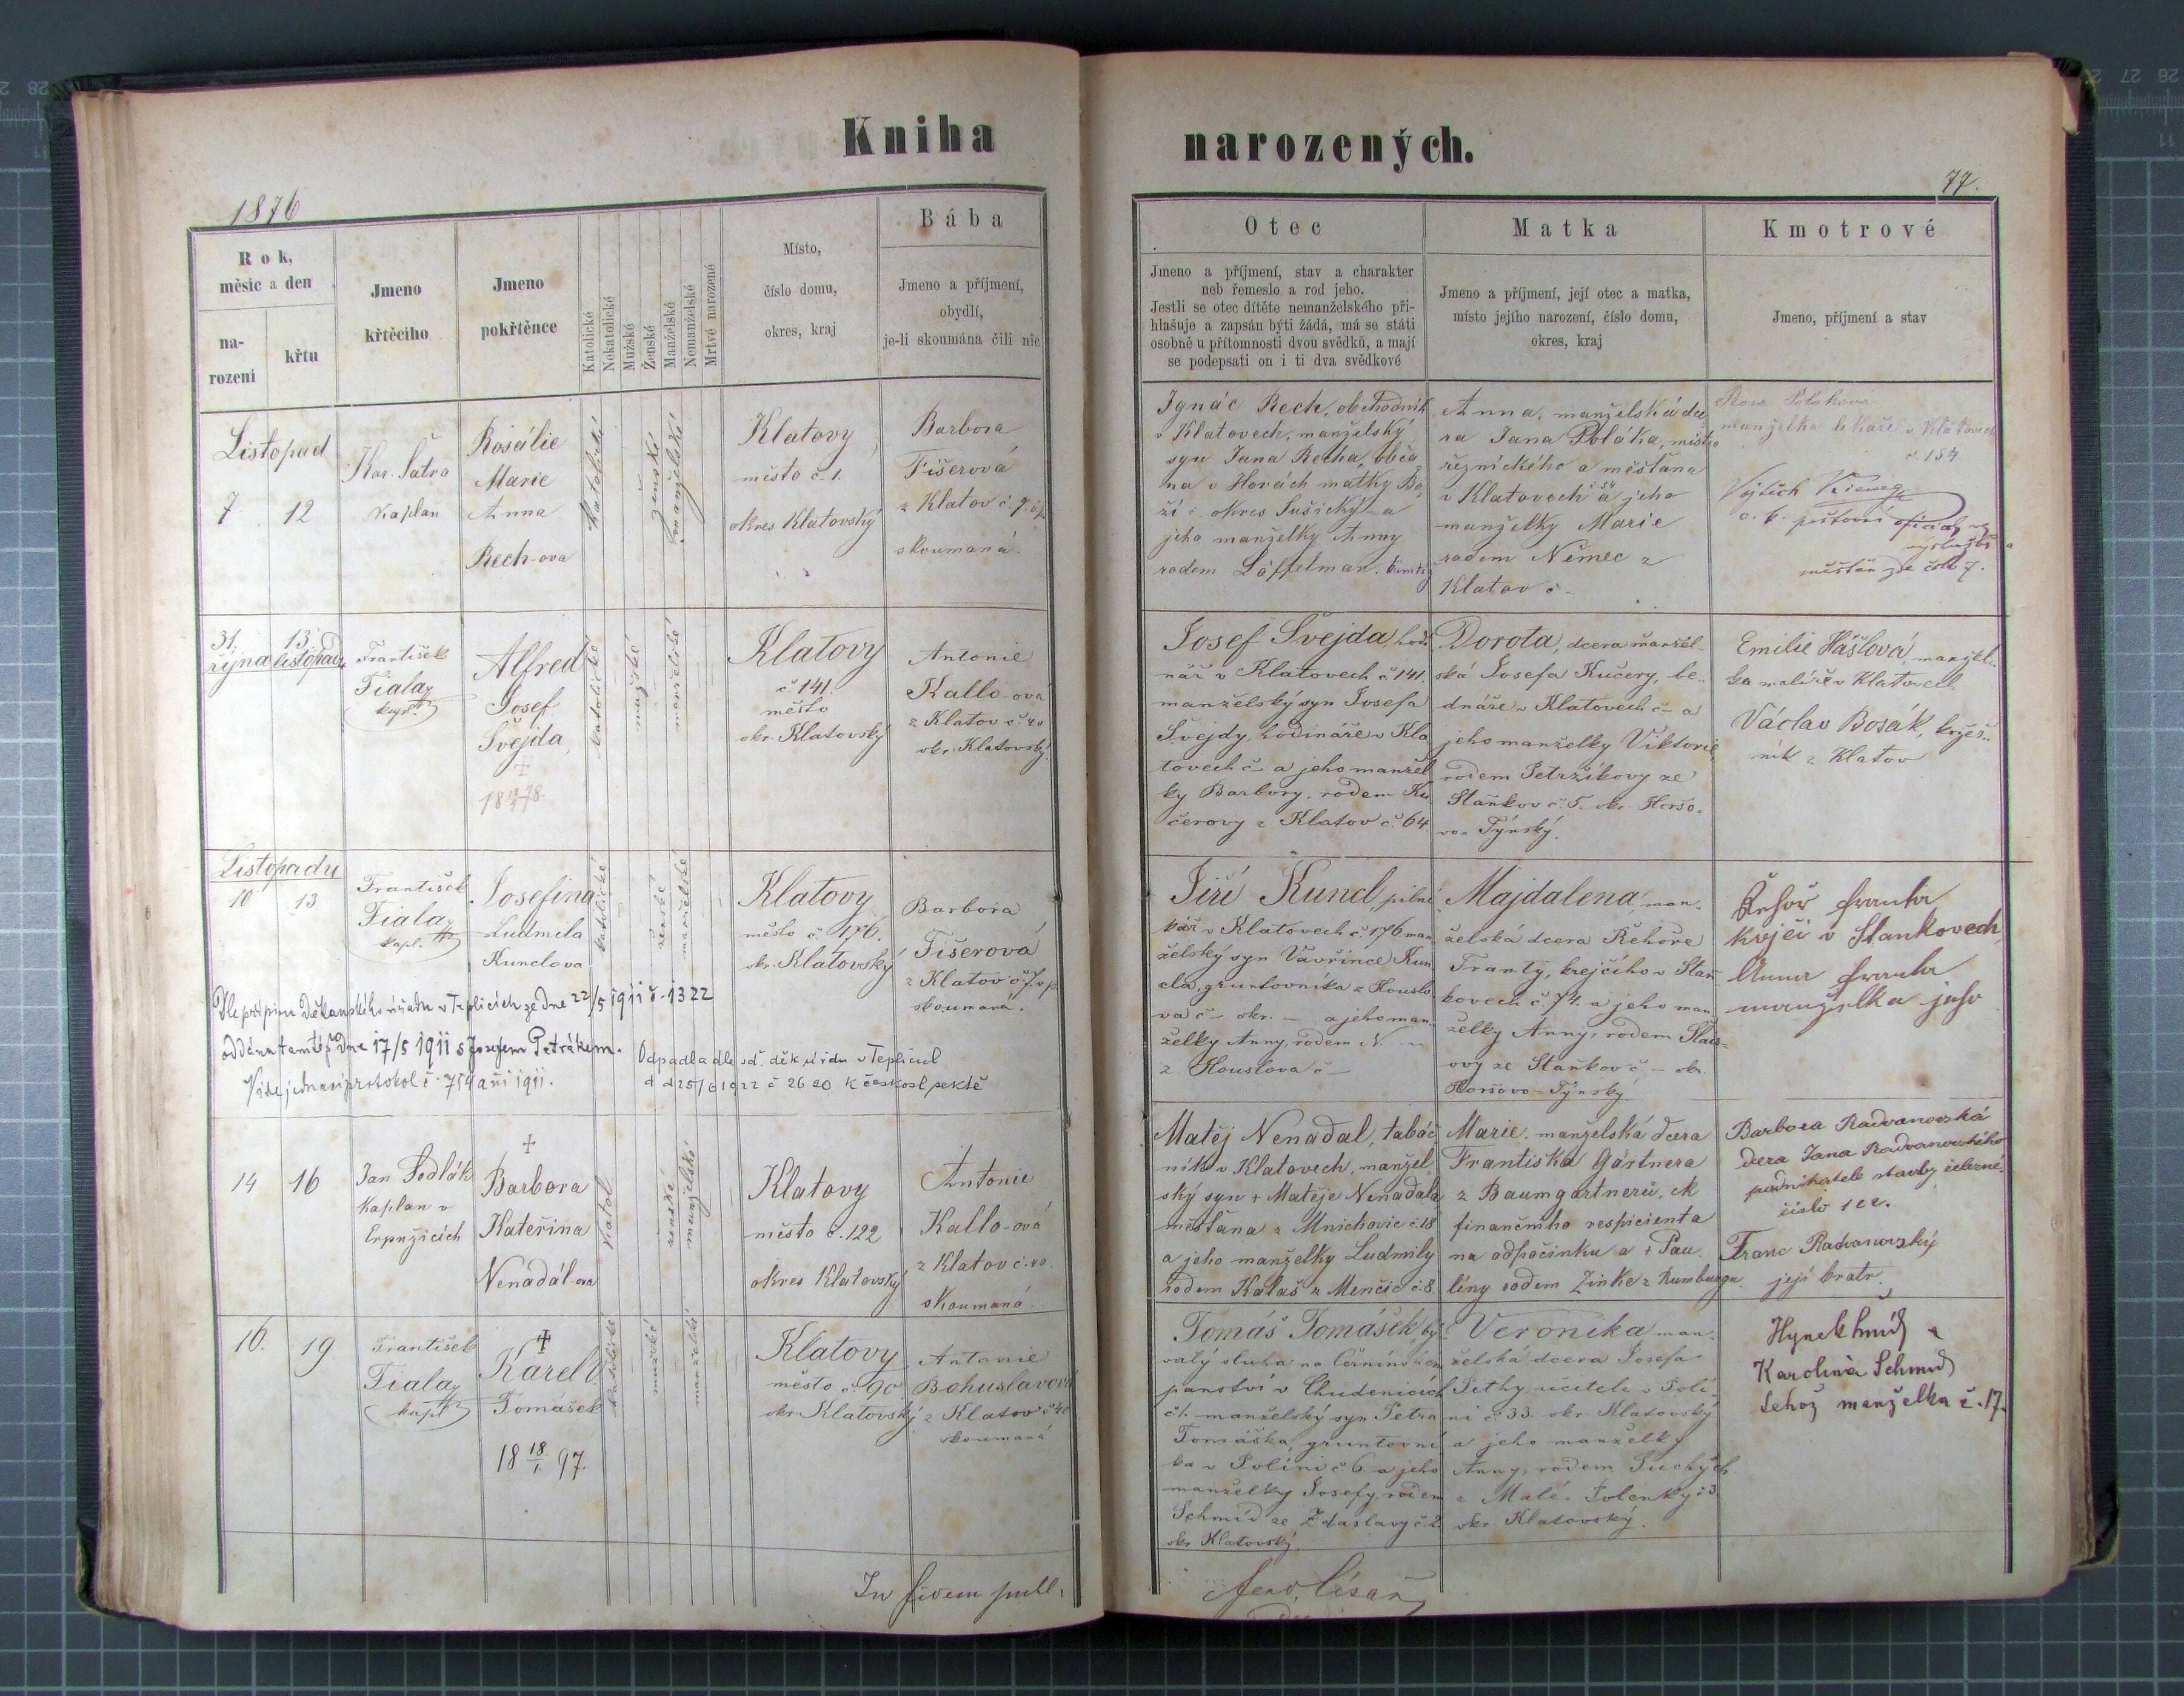 Kniha
narozených.
1876
77.
Rok,
měsíc a den
na-
rození
křtu
Jmeno
křtěcího
Jmeno
pokřtěnce
Katolické
Nekatolické
Mužské
Ženské
Manželské
Nemanželské
Mrtvé narozené
Místo,
číslo domu,
okres, kraj
Bába
Jmeno a příjmení,
obydlí,
je-li skoumána čili nic
Otec
Jmeno a příjmení, stav a charakter
neb řemeslo a rod jeho.
Jestli se otec dítěte nemanželského při-
hlašuje a zapsán býti žádá, má se státi
osobně u přítomnosti dvou svědků, a mají
se podepsati on i ti dva svědkové
Matka
Jmeno a příjmení, její otec a matka,
místo jejího narození, číslo domu,
okres, kraj
Kmotrové
Jmeno, příjmení a stav
Listopad
7 12
Kar. Šatra
Kaplan
Rosálie
Marie
Anna
Rech-ova
katolické
ženské
manželské
Klatovy
město č. 1.
okres Klatovský
Barbora
Fišerová
z Klatov č. 7.
skoumaná.
Ignác Rech, obchodník
v Klatovech, manželský
syn Jana Recha, obča-
na v Horách matky Bo-
ží č. okres Sušický a
jeho manželky Anny
rodem Löffelman.
Anna, manželská dce-
ra Jana Poláka, mistra
řeznického a měšťana
v Klatovech a jeho
manželky Marie
rodem Němec z
Klatov č –
Rosa Polákova
manželka lékaře v Klatovech
č. 184
Vojtěch
c. k. poštovní oficiál
měšťan
31. října
13. listopadu
František
Fiala
kapl.
Alfred
Josef
Švejda,
katolické
mužské
manželské
Klatovy
č. 141.
město
okr. Klatovský
Antonie
Kallo-ová
z Klatov č. 40
okr. Klatovský.
Josef Švejda, hodi-
nář v Klatovech č 141.
manželský syn Josefa
Švejdy, hodináře v Kla-
tovech č – a jeho manžel-
ky Barbory, rodem Ku-
čerovy z Klatov č. 64.
Dorota, dcera manžel-
ská Josefa Kučery, be-
dnáře v Klatovech č – a
jeho manželky Viktorie,
rodem Petržíkovy ze
Staňkov č. 5. okr. Horšo-
vo-Týnský.
Emilie Hášlová, manžel-
ka malíře v Klatovech
Václav Bosák,
ník z Klatov
Listopadu
10 13
František
Fiala
kapl.
Josefina
Ludmila
Kunclova
katolické
ženské
manželské
Klatovy
město č. 176.
okr. Klatovský
Barbora
Fišerová
z Klatov č. 7.
skoumaná.
Dle přípisu Děkanského úřadu v Teplicích ze dne 22/5 1911 č. 1322
oddána tamtéž dne 17/5 1911 s Josefem Petrákem.
Viz jednací protokol č. 754 ai 1911.
Odpadla dle sd. děk úřadu v Teplicích
d d 25/6 1922 č 2620 k českosl sektě
Jiří Kuncl, pilní-
kář v Klatovech č 176 man-
želský syn Vavřince Kun-
cla, gruntovníka z Housto-
va č – okr. – a jeho man-
želky Anny, rodem N.
z Houslova č –
Majdalena, man-
želská dcera Řehoře
Franty, krejčího v Staň-
kovech č. 74. a jeho man-
želky Anny, rodem
ovy ze Staňkov č – okr.
Horšovo-Týnský
Řehoř Franta
krejčí v Stankovech,
Anna Franta
manželka jeho
14 16
Jan Sedlák
Kaplan v
Erpužicích
Barbora
Kateřina
Nenadálova
katol.
ženské
manželské
Klatovy
město č. 122
okres Klatovský
Antonie
Kallo-ová
z Klatov č. 40.
skoumaná.
Matěj Nenadal, tabáč-
ník v Klatovech, manžel-
ský syn + Matěje Nenadala
měšťana z Mnichovic č. 18
a jeho manželky Ludmily
rodem Kalaš z Menčic č. 8.
Marie, manželská dcera
Františka Gärtnera
z Baumgartnerů, ck
finančního respicienta
na odpočinku a + Pau-
líny rodem Zinke z Rumburgu
Barbora Radvanovská
dcera Jana Radvanovského
podnikatele stavby železné.
číslo 122.
Franc Radvanovský
její bratr.
16. 19
František
Fiala
kapl
Karel
Tomášek
18 18/1. 97.
katolické
mužské
manželské
Klatovy
město č. 90
okr. Klatovský
Antonie
Bohuslavová
z Klatov č 40
skoumaná
Tomáš Tomášek, by-
valý sluha na Černínském
panství v Chudenicích
č 1. manželský syn Petra
Tomáška, gruntovní-
ka v Polini č. 6. a jeho
manželky Josefy, rodem
Schmid ze Zdaslavy č. 2.
okr. Klatovský
Veronika, man-
želská dcera Josefa
Pithy, učitele v Poli-
ni č. 33. okr. Klatovský
a jeho manželky
Anny, rodem Suchých
z Malé-Polenky č 3.
okr. Klatovský.
Hynek Šmíd a
Karolina Schmid
tehož manželka č. 17.
In fidem publ.
Ferd. Císař